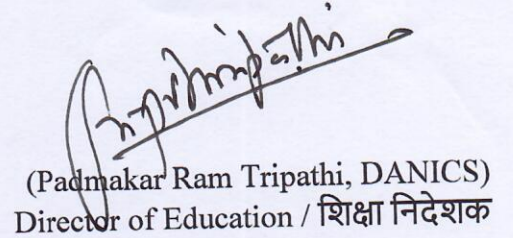 (Padmakar Ram Tripathi, DANICS)
Director of Education / शिक्षा निदेशक